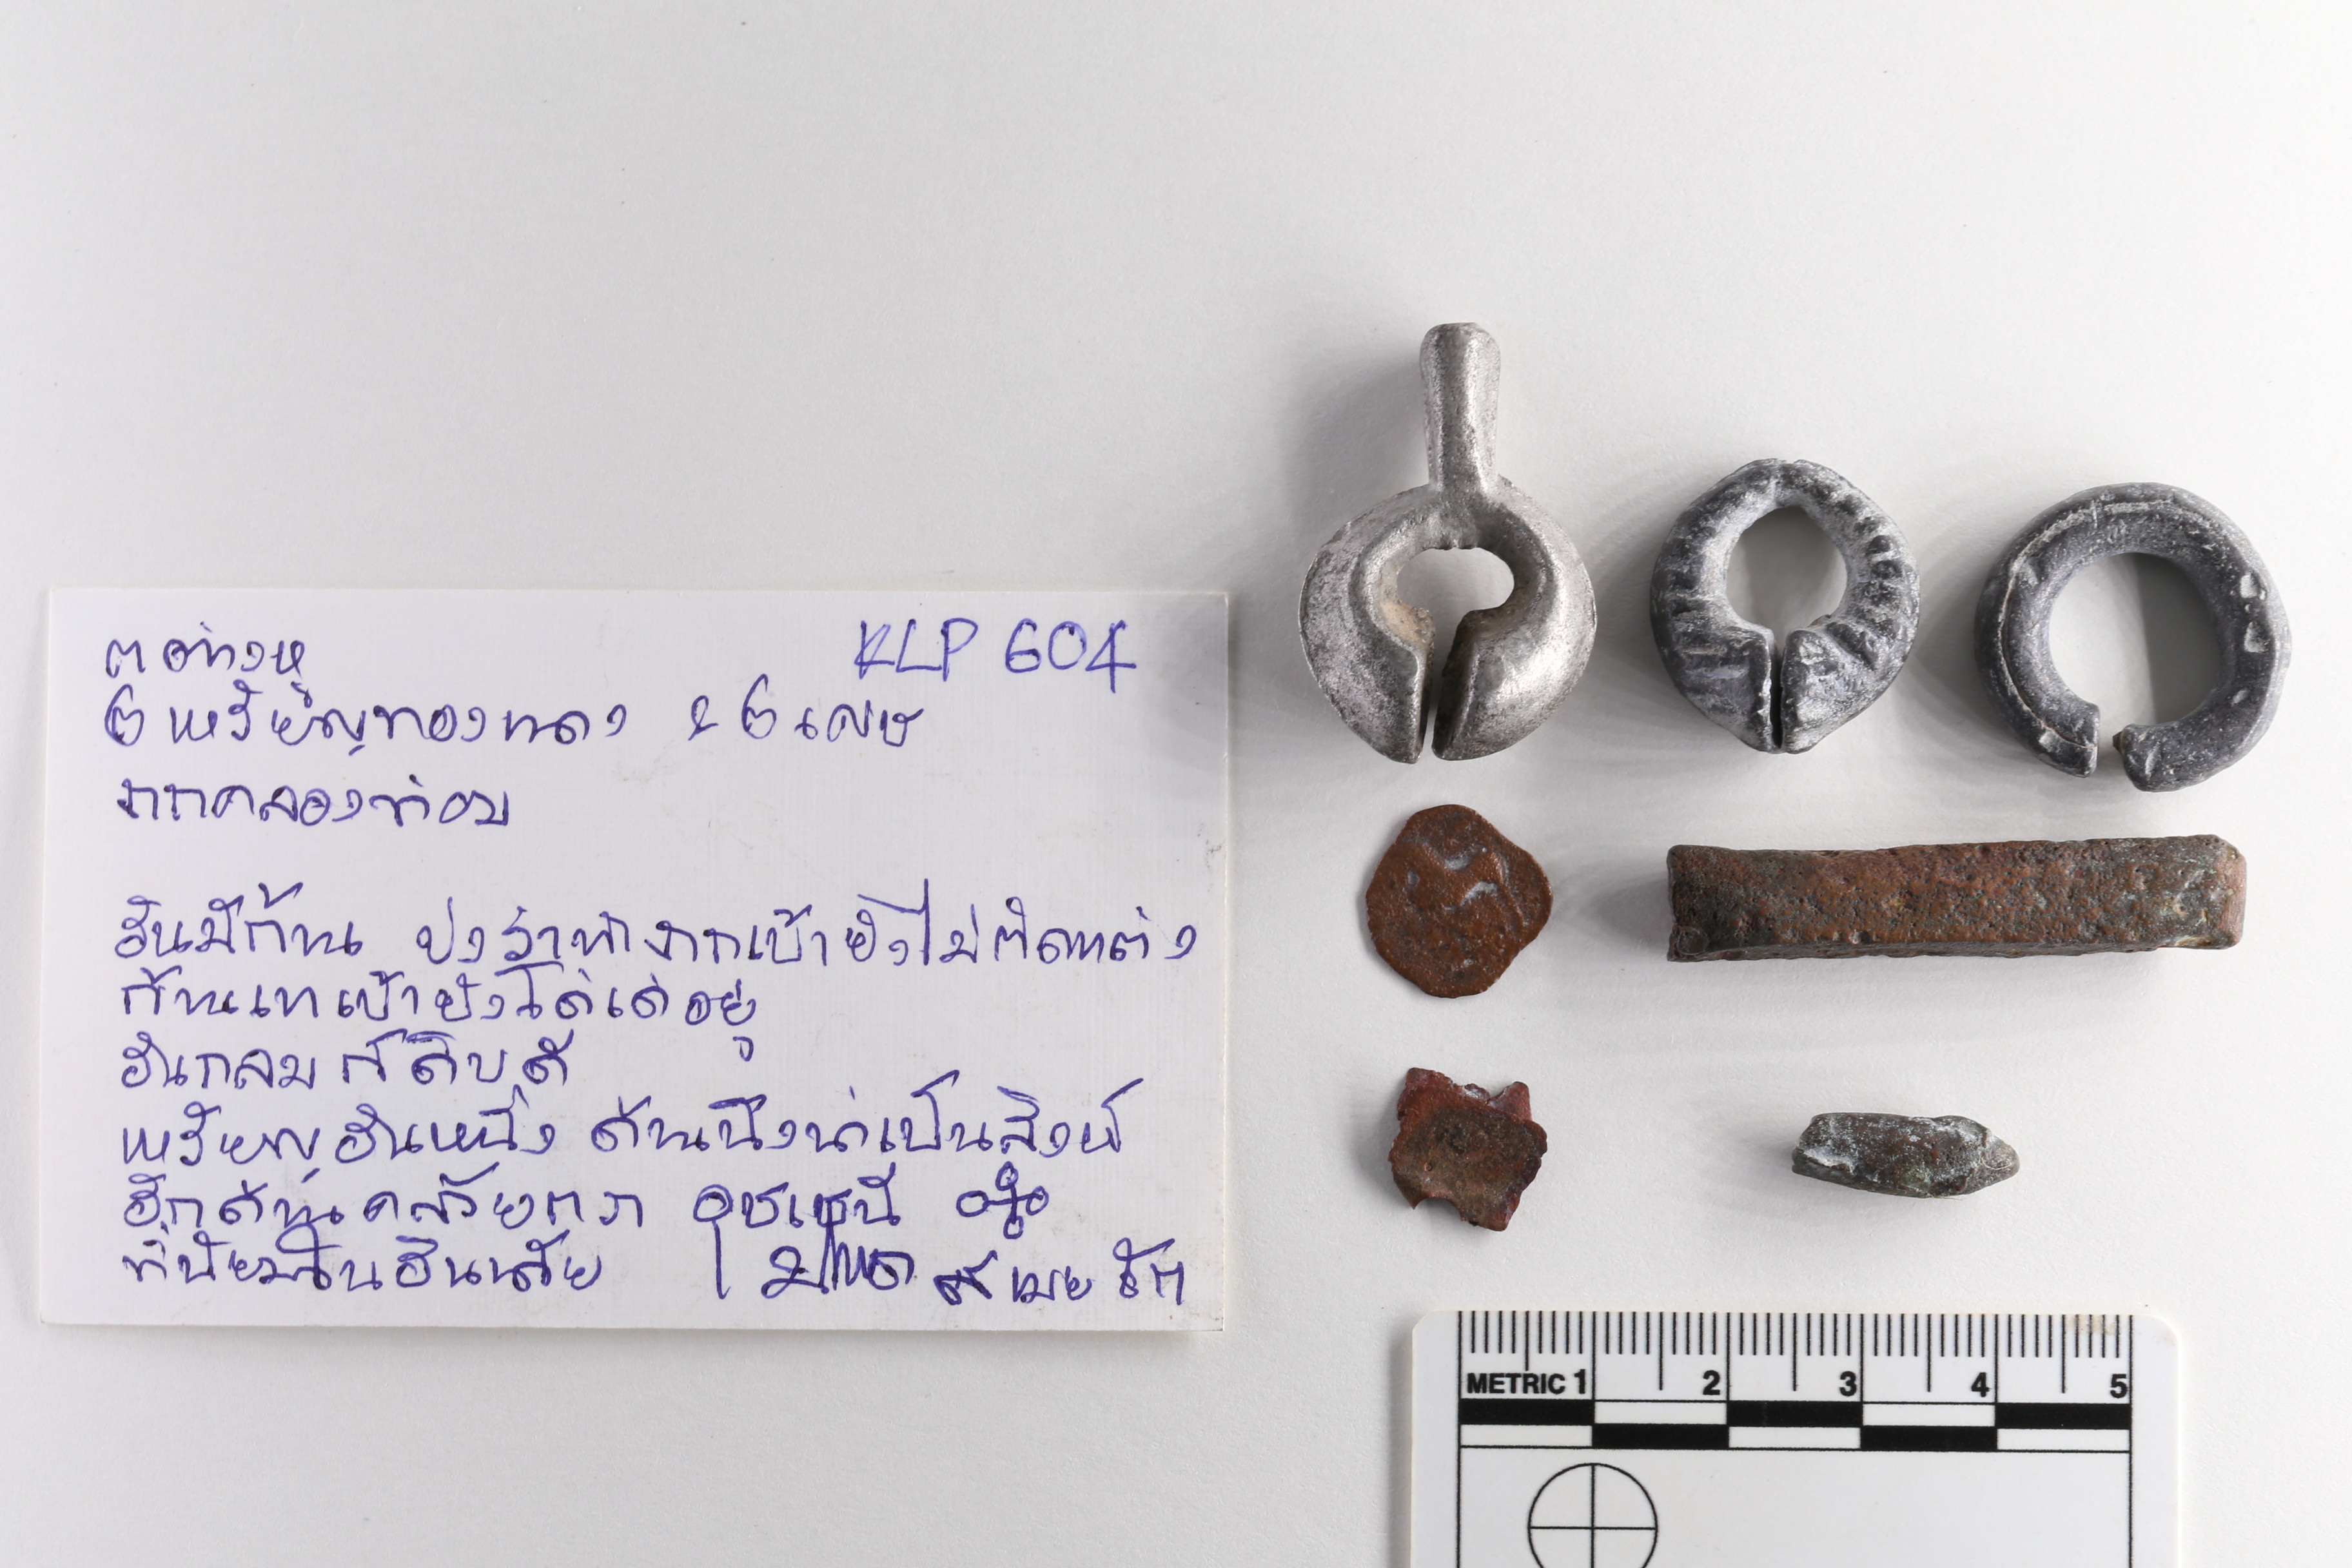 KLP 604
๓ ต่างหู
๒ เหรียญทองแดง & ๒ เศษ
จากคลองท่อม
อันมีก้าน บ่งว่าทำจากเบ้ายังไม่ตัดแต่ง
ก้านเทเบ้ายังโด่เด่อยู่
อันกลมก็ดิบดี
เหรียญอันหนึ่ง ด้านนึงน่าเป็นสิงห์
อีกด้านคล้ายตรา อุชเชนี
ที่นิยมในอินเดีย
METRIC 1 2 3 4 5